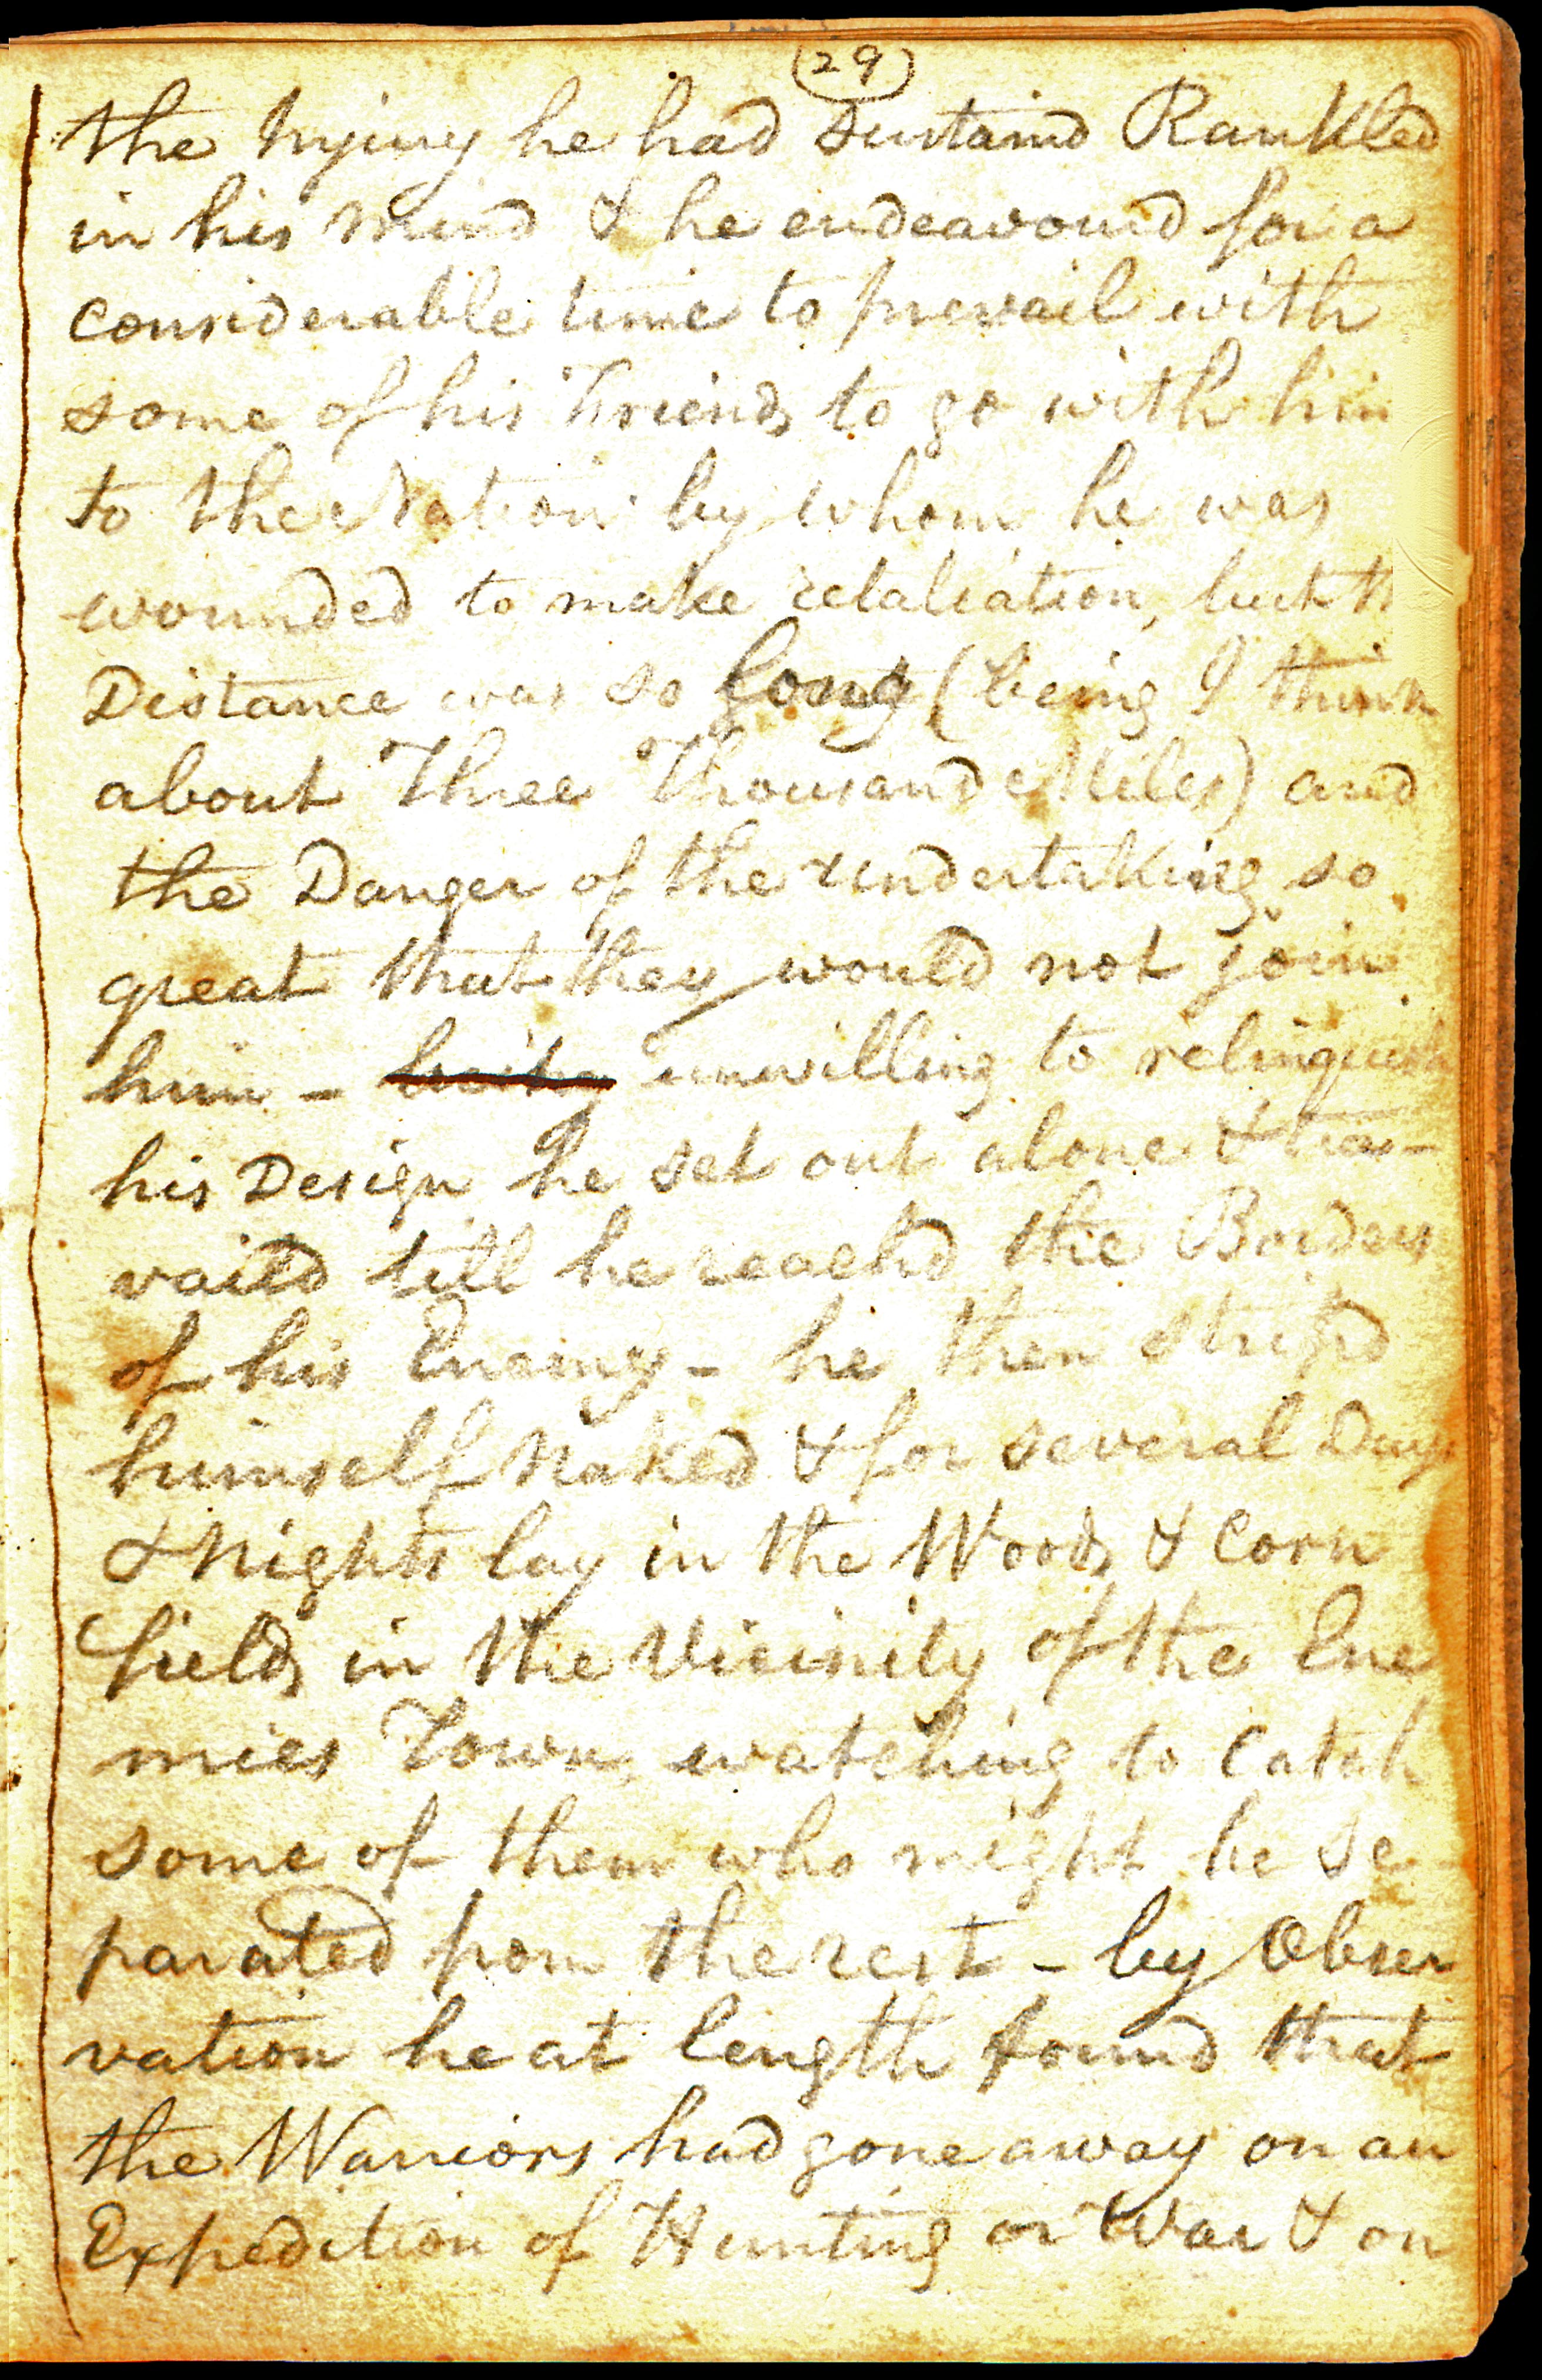 (29)
the Injury he had sustaind Rankled
in his mind & he endeavourd for a
considerable time to prevail with
some of his Friends to go with him
to the Nation by whom he was
wounded to make retaliation, but th
Distance was so long (being I think
about Three Thousand Miles) and
the Danger of the undertaking so
great that they would not join
him - unwilling to relinquish
his Design he set out alone & tra-
vaild till he reachd the Borders
of his Enemy - he then stripd
himself Naked & for several Days
& Nights lay in the Woods & Corn
fields in the Vicinity of the Ene
mies Town, watching to Catch
some of them who might be se
parated from the rest - by Obser
vation he at length found that
the Warriors had gone away on an
Expedition of Hunting or War & on